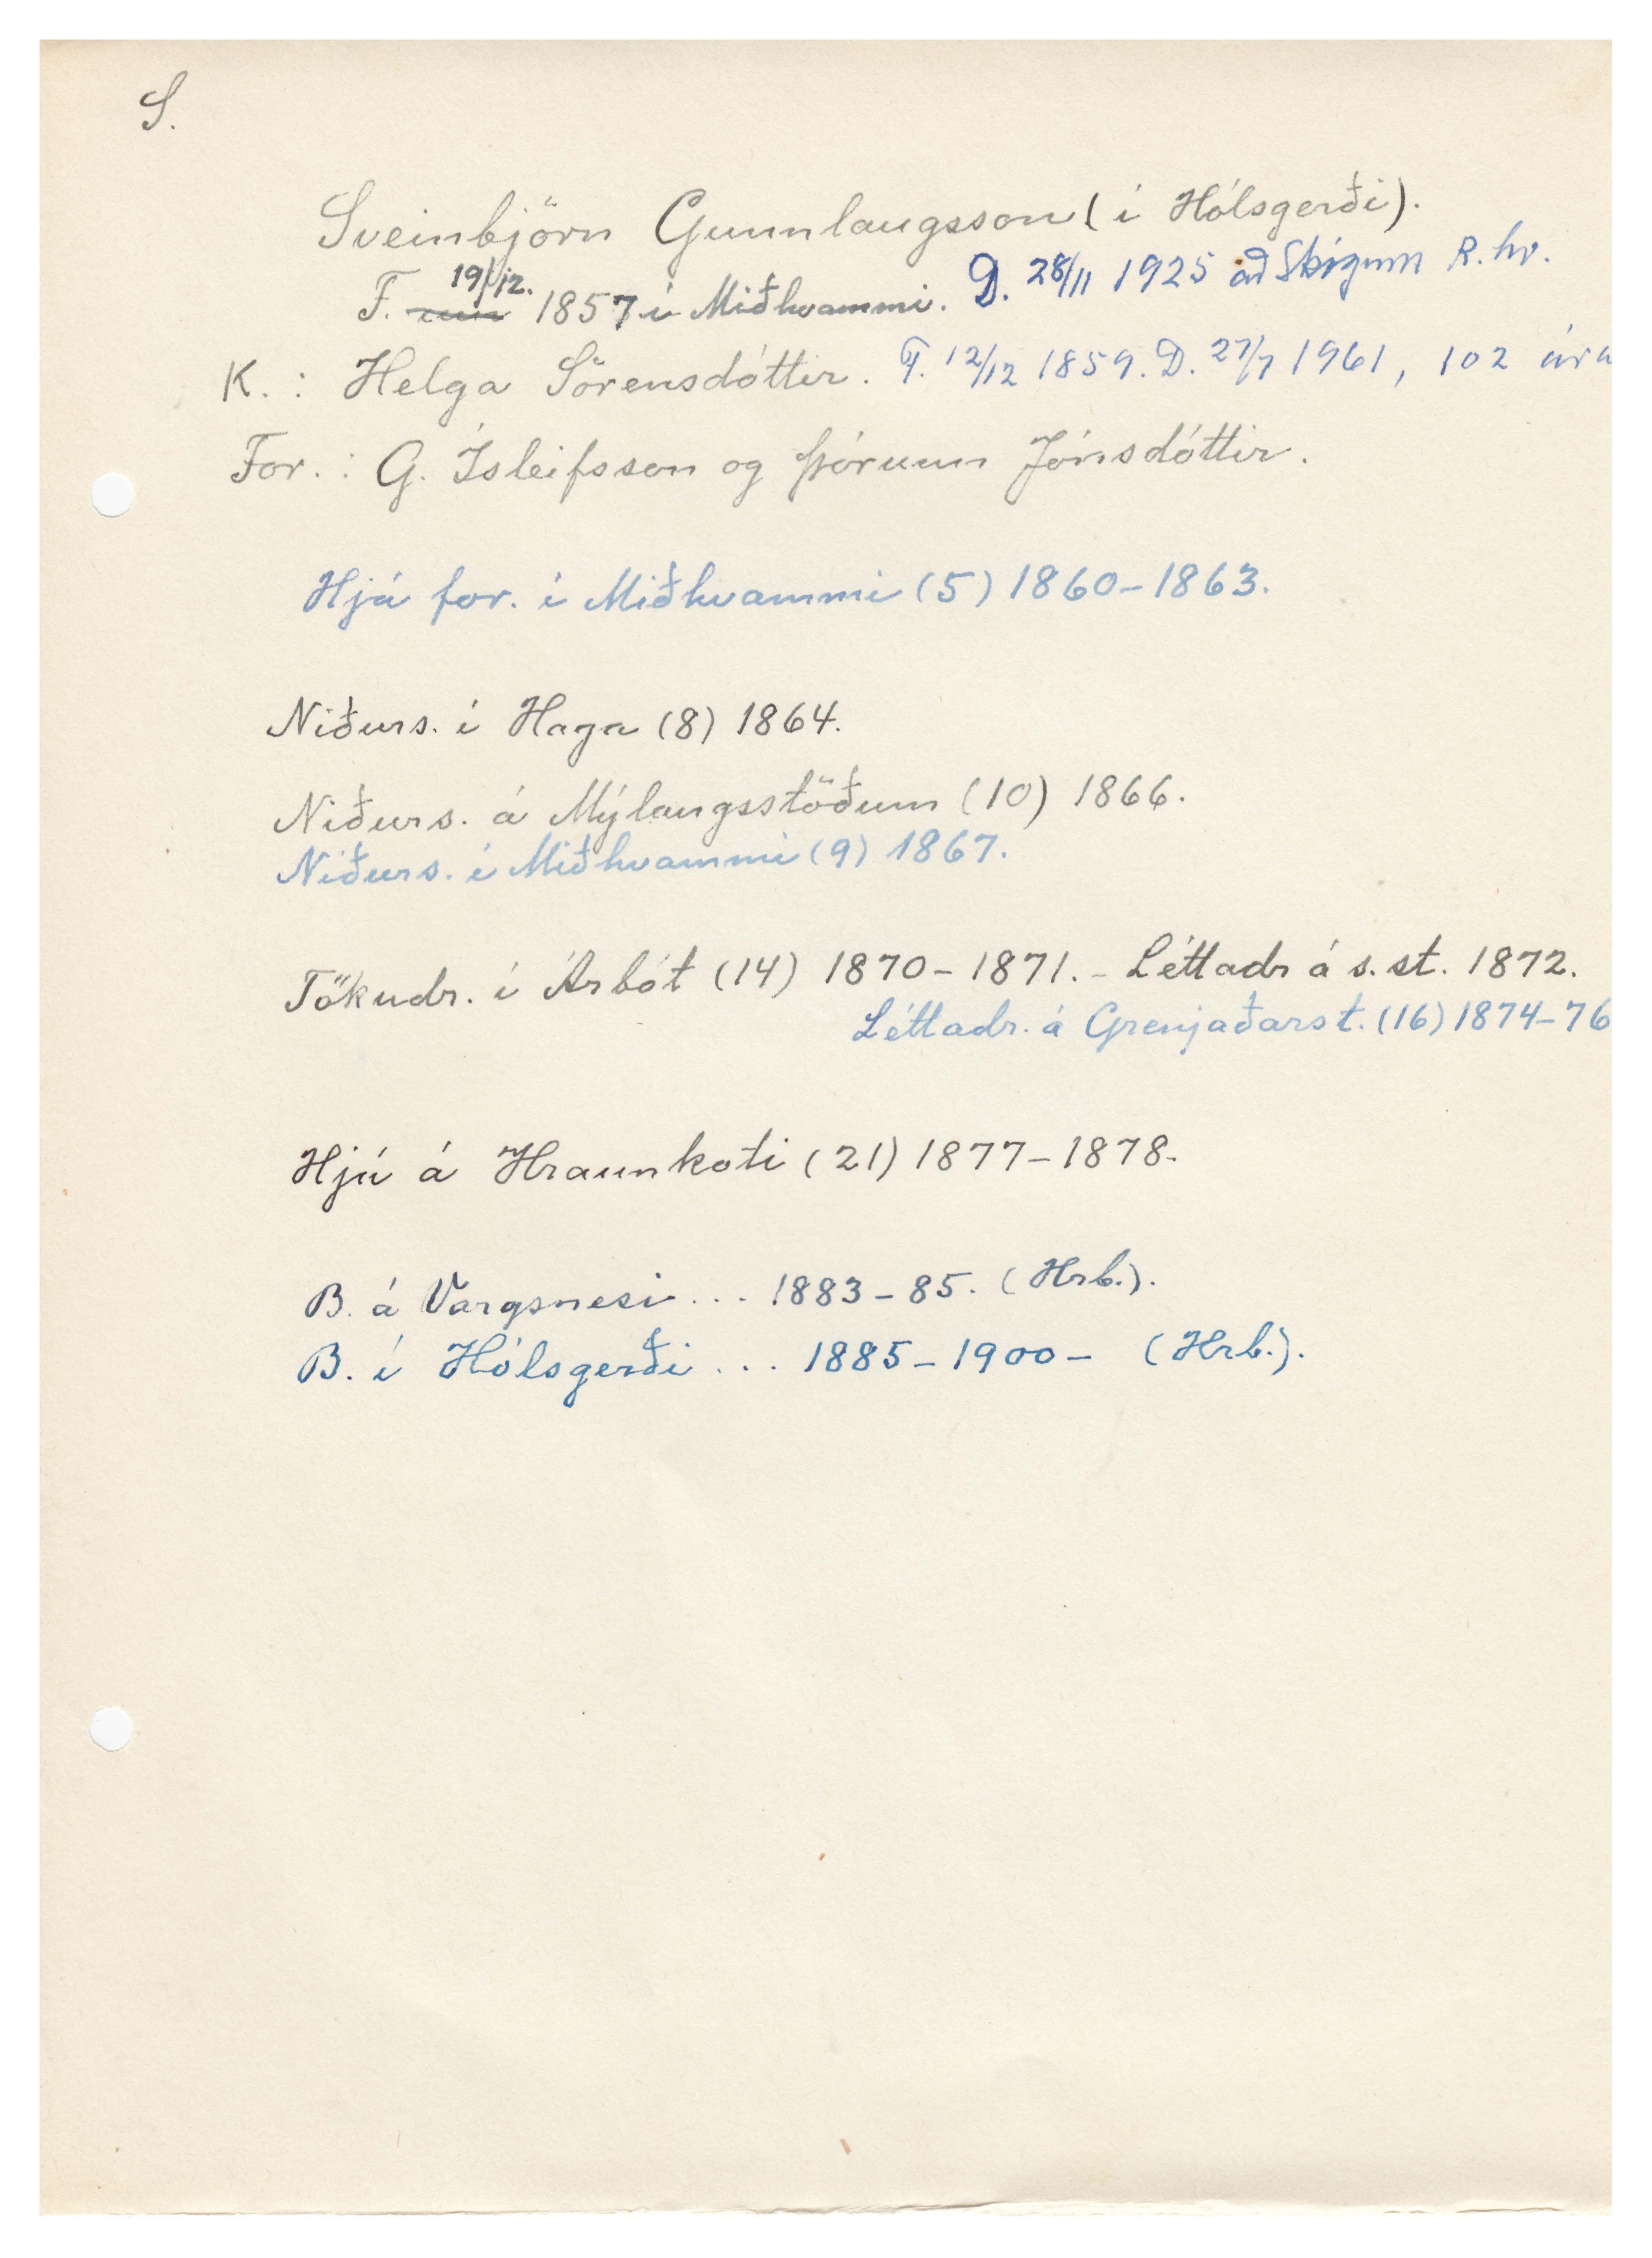 S.
Sveinbjörn Gunnlaugsson (í Hólsgerði).
F. 19/12. 1857 í Miðhvammi. D. 28/11 1925 að Skógum R.hv.
K. : Helga Sörensdóttir. F. 12/12 1859. D. 27/7 1961, 102 ára
For. : G. Ísleifsson og Þórunn Jónsdóttir.
Hjá for. í Miðhvammi (5) 1860-1863.
Niðurs. í Haga (8) 1864.
Niðurs. á Mýlaugsstöðum (10) 1866.
Niðurs. í Miðhvammi (9) 1867.
Tökudr. í Árbót (14) 1870-1871. - Léttadr á s. st. 1872.
Léttadr. á Grenjaðarst. (16) 1874-76
Hjú á Hraunkoti (21) 1877-1878.
B. á Vargsnesi ... 1883-85. (Hrb.).
B. í Hólsgerði ... 1885-1900- (Hrb.).